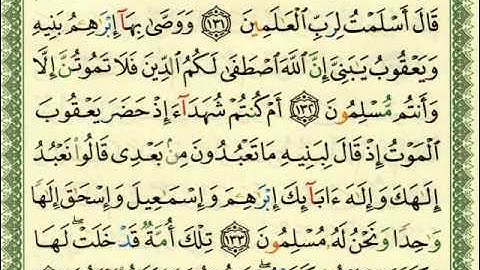 قَالَ أَسْلَمْتُ لِرَبِّ ٱلْعَٰلَمِينَ ١٣١ وَوَصَّىٰ بِهَآ إِبْرَٰهِـۧمُ بَنِيهِ
وَيَعْقُوبُ يَٰبَنِىَّ إِنَّ ٱللَّهَ ٱصْطَفَىٰ لَكُمُ ٱلدِّينَ فَلَا تَمُوتُنَّ إِلَّا
وَأَنتُم مُّسْلِمُونَ ١٣٢ أَمْ كُنتُمْ شُهَدَآءَ إِذْ حَضَرَ يَعْقُوبَ
ٱلْمَوْتُ إِذْ قَالَ لِبَنِيهِ مَا تَعْبُدُونَ مِنۢ بَعْدِى قَالُوا۟ نَعْبُدُ
إِلَٰهَكَ وَإِلَٰهَ ءَابَآئِكَ إِبْرَٰهِـۧمَ وَإِسْمَٰعِيلَ وَإِسْحَٰقَ إِلَٰهًا
وَٰحِدًا وَنَحْنُ لَهُۥ مُسْلِمُونَ ١٣٣ تِلْكَ أُمَّةٌ قَدْ خَلَتْ ۖ لَهَا